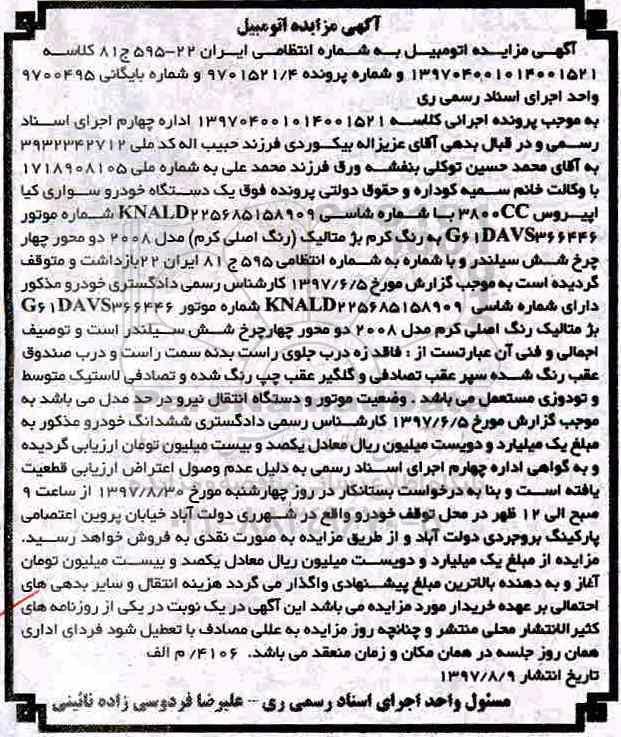 آگهی مزایده اتومبیل
آگهی مزایده اتومبیل به شماره انتظامی ایران ۲۲-۵۹۵ ج۸۱ کلاسه
۱۳۹۷۰۴۰۰۱۰۱۴۰۰۱۵۲۱ و شماره پرونده ۹۷۰۱۵۲۱/۴ و شماره بایگانی ۹۷۰۰۴۹۵
واحد اجرای اسناد رسمی ری
به موجب پرونده اجرائی کلاسه ۱۳۹۷۰۴۰۰۱۰۱۴۰۰۱۵۲۱ اداره چهارم اجرای اسناد
رسمی و در قبال بدهی آقای عزیزاله بیکوردی فرزند حبیب اله کد ملی ۳۹۳۲۳۴۲۷۱۲
به آقای محمد حسین توکلی بنفشه ورق فرزند محمد علی به شماره ملی ۱۷۱۸۹۰۸۱۰۵
با وکالت خانم سمیه کوداره و حقوق دولتی پرونده فوق یک دستگاه خودرو سواری کیا
اپیروس ۳۸۰۰CC با شماره شاسی KNALD۲۲۵۶۸۵۱۵۸۹۰۹ شماره موتور
G۶۱DAVS۳۶۶۴۴۶ به رنگ کرم بژ متالیک (رنگ اصلی کرم) مدل ۲۰۰۸ دو محور چهار
چرخ شش سیلندر و با شماره به شماره انتظامی ۵۹۵ ج ۸۱ ایران ۲۲بازداشت و متوقف
گردیده است به موجب گزارش مورخ ۱۳۹۷/۶/۵ کارشناس رسمی دادگستری خودرو مذکور
دارای شماره شاسی KNALD۲۲۵۶۸۵۱۵۸۹۰۹ شماره موتور G۶۱DAVS۳۶۶۴۴۶
بژ متالیک رنگ اصلی کرم مدل ۲۰۰۸ دو محور چهارچرخ شش سیلندر است و توصیف
اجمالی و فنی آن عبارتست از : فاقد زه درب جلوی راست بدنه سمت راست و درب صندوق
عقب رنگ شده سپر عقب تصادفی و گلگیر عقب چپ رنگ شده و تصادفی لاستیک متوسط
و تودوزی مستعمل می باشد . وضعیت موتور و دستگاه انتقال نیرو در حد مدل می باشد به
موجب گزارش مورخ ۱۳۹۷/۶/۵ کارشناس رسمی دادگستری ششدانگ خودرو مذکور به
مبلغ یک میلیارد و دویست میلیون ریال معادل یکصد و بیست میلیون تومان ارزیابی گردیده
و به گواهی اداره چهارم اجرای اسناد رسمی به دلیل عدم وصول اعتراض ارزیابی قطعیت
یافته است و بنا به درخواست بستانکار در روز چهارشنبه مورخ ۱۳۹۷/۸/۳۰ از ساعت ۹
صبح الی ۱۲ ظهر در محل توقف خودرو واقع در شهرری دولت آباد خیابان پروین اعتصامی
پارکینگ بروجردی دولت آباد و از طریق مزایده به صورت نقدی به فروش خواهد رسید.
مزایده از مبلغ یک میلیارد و دویست میلیون ریال معادل یکصد و بیست میلیون تومان
آغاز و به دهنده بالاترین مبلغ پیشنهادی واگذار می گردد هزینه انتقال و سایر بدهی های
احتمالی بر عهده خریدار مورد مزایده می باشد این آگهی در یک نوبت در یکی از روزنامه های
کثیرالانتشار محلی منتشر و چنانچه روز مزایده به عللی مصادف با تعطیل شود فردای اداری
همان روز جلسه در همان مکان و زمان منعقد می باشد. ۴۱۰۶/ م الف
تاریخ انتشار ۱۳۹۷/۸/۹
مسئول واحد اجرای اسناد رسمی ری - علیرضا فردوسی زاده نائینی